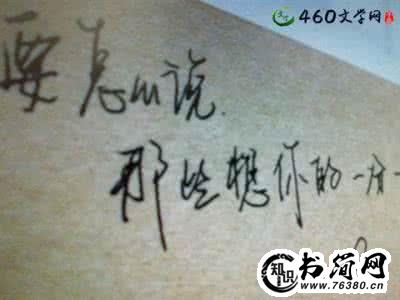 460文学网
要怎么说.
那些想你的一分一
知识
书简网
www.76380.cn